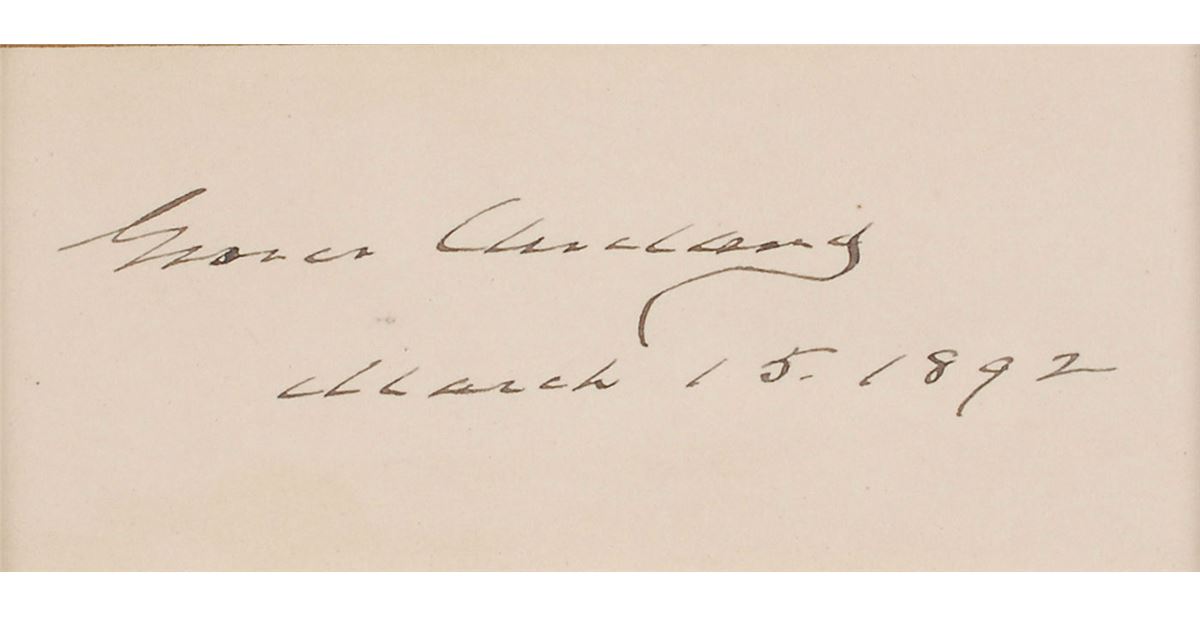 Grover Cleveland
March 15. 1892